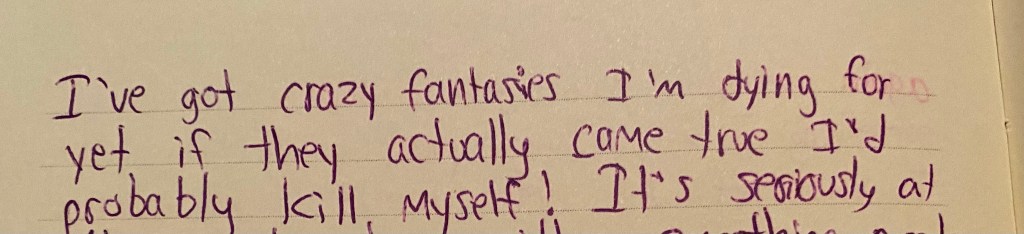 I've got crazy fantasies I'm dying for
yet if they actually came true I'd
probably kill myself! It's seriously at